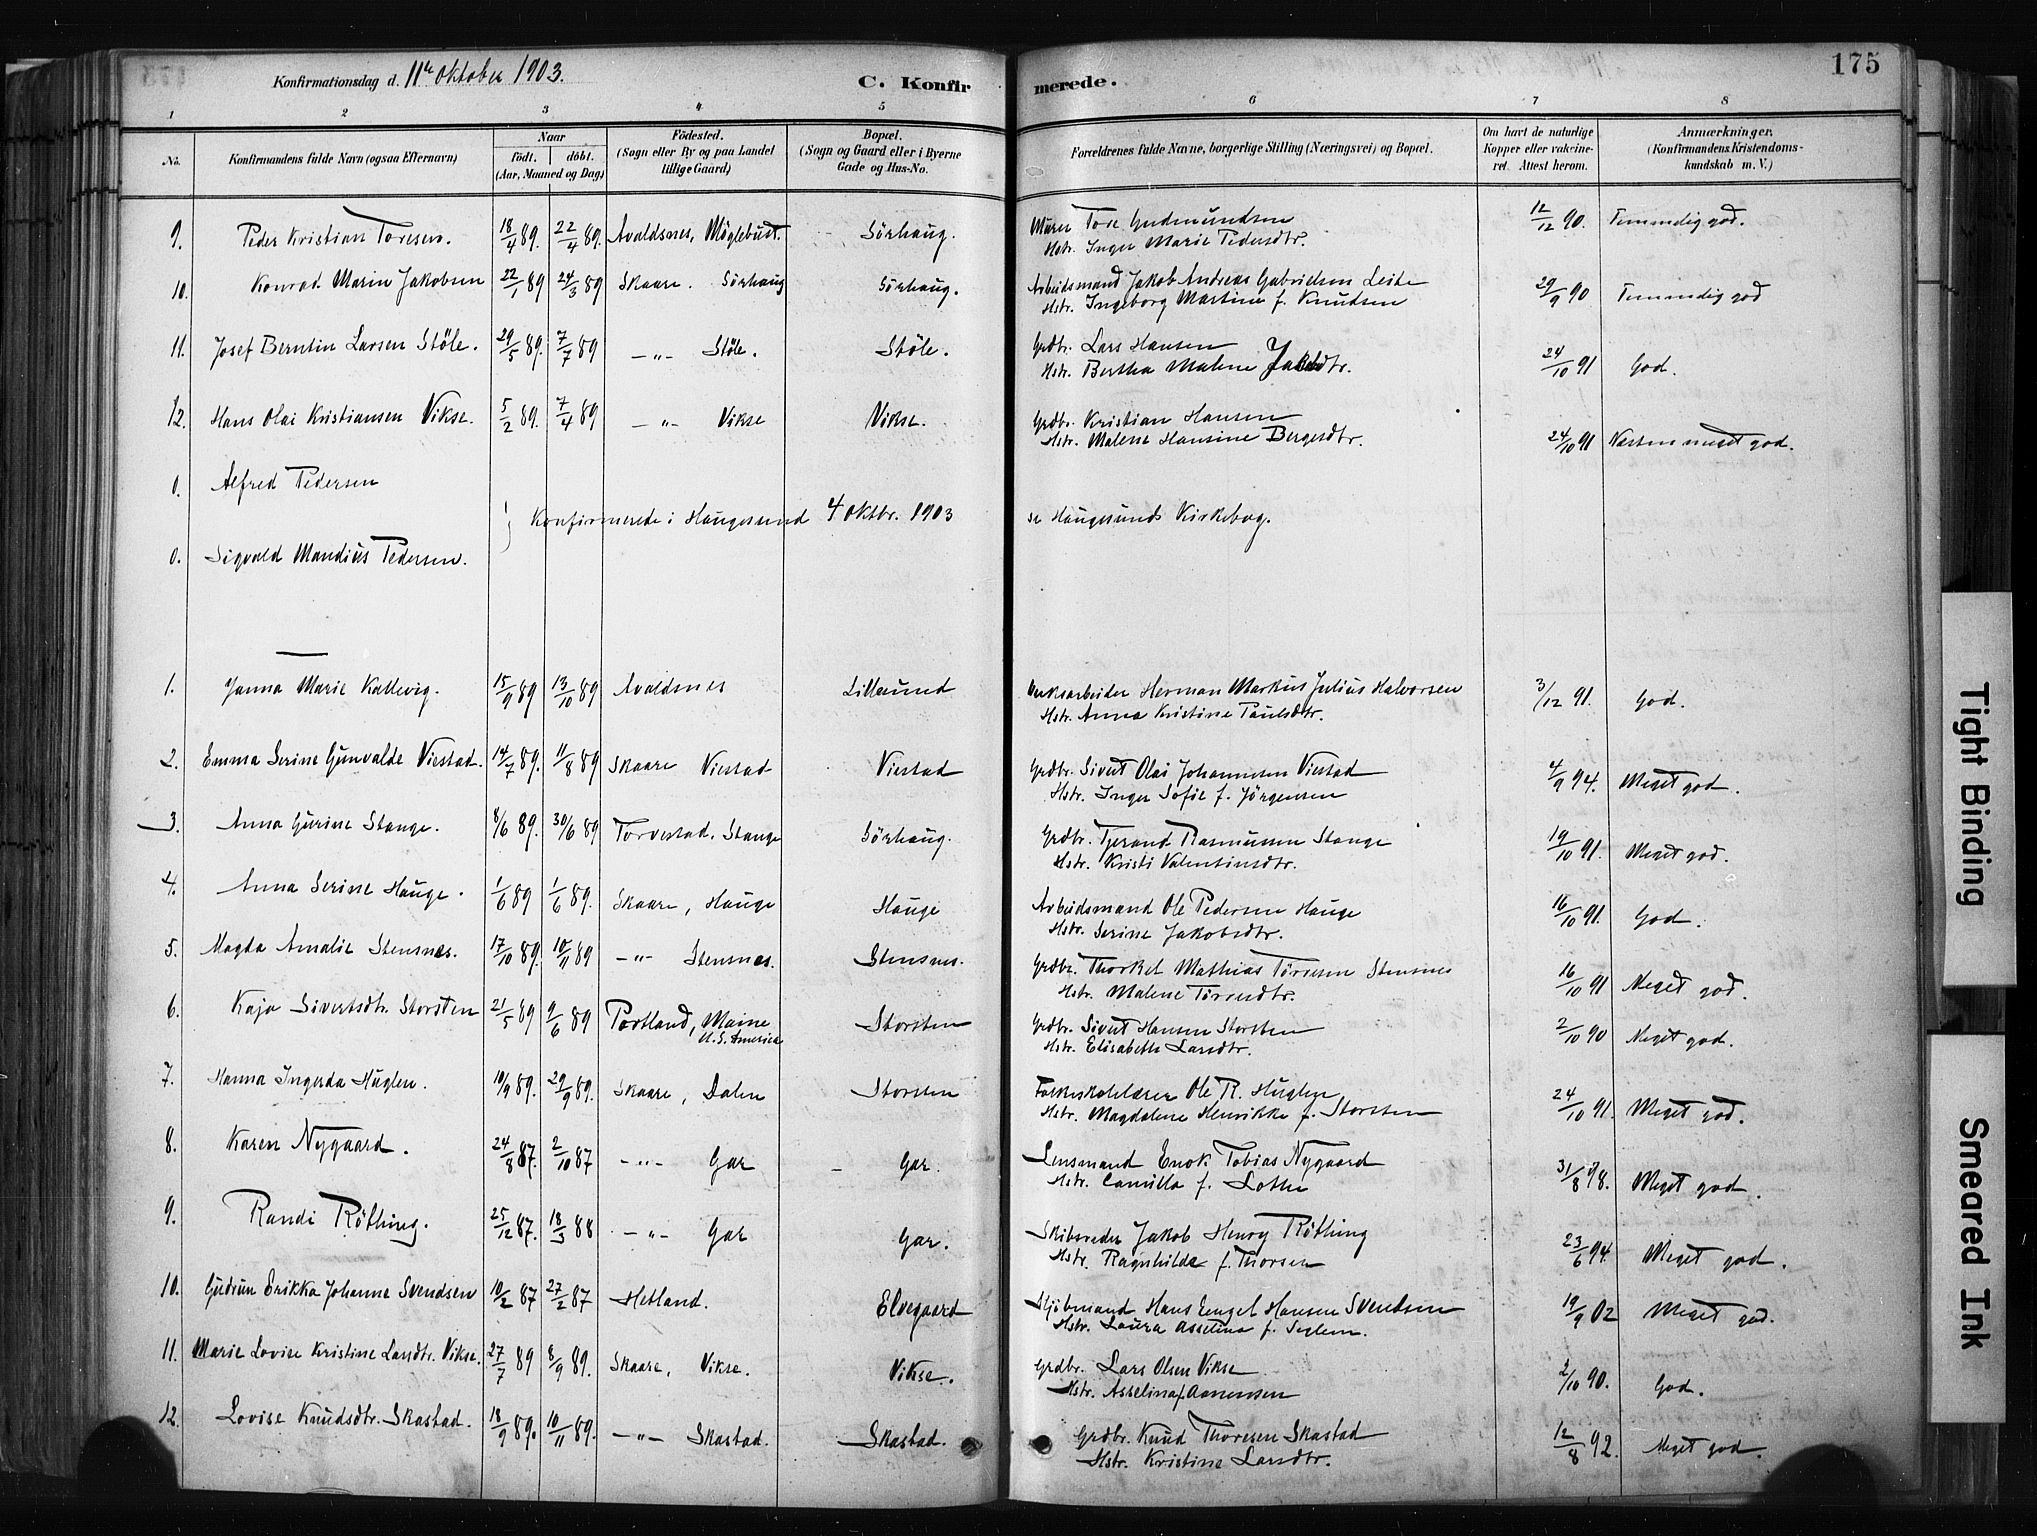 Konfirmationsdag d. 11te Oktober 1903. C. Konfirmerede. 175
1 2 3 4 5 6 7 8
No. Konfirmandens fulde Navn (ogsaa Efternavn) Naar födt. döbt. (Aar, Maaned og Dag) Födested. (Sogn eller By og paa Landet tillige Gaard) Bopæl. (Sogn og Gaard eller i Byerne Gade og Hus-No. Forældrenes fulde Navne, borgerlige Stilling (Næringsvei) og Bopæl. Om havt de naturlige Kopper eller vakcineret. Attest herom. Anmærkninger. (Konfirmandens Kristendomskundskab m. V.)
9. Peder Kristian Toresen. 18/4 89. 22/4 89. Avaldsnes, Möglebust. Sörhaug. Murer Tore Gudmundsen 12/12 90. Temmelig god.
Hstr. Inger Marie Pedersdtr.
10. Konrad Marin Jakobsen 22/1 89 24/3 89 Skaare. Sörhaug Sörhaug. Arbeidsmand Jakob Andreas Gabrielsen Leite 29/9 90 Temmelig god
Hstr. Ingeborg Martine f. Knudsen
11. Josef Berntin Larsen Stöle. 29/5 89. 7/7 89 —"— Stöle. Stöle. Grdbr. Lars Hansen 24/10 91 God.
Hstr. Bertha Malene
12. Hans Olai Kristiansen Vikse. 5/2 89. 7/4 89 —"— Vikse Vikse. Grdbr. Kristian Hansen 24/10 91 Næsten meget god.
Hstr. Malene Hansine Bergesdtr.
0. Alfred Pedersen
Konfirmerede i Haugesund 4 Oktbr. 1903 se Haugesunds Kirkebog.
0. Sigvald Mandius Pedersen.
1. Janna Marie Kallevig. 15/9 89 13/10 89 Avaldsnes Lillesund Herman Markus Julius Halvorsen 3/12 91. God.
Hstr. Anna Kristine Paulsdtr.
2. Emma Serine Gunvalde Viestad. 14/7 89. 11/8 89 Skaare Viestad Viestad Grdbr. Sivert Olai Johannesen Viestad 4/9 94. Meget god.
Hstr. Inger Sofie f. Jörgensen
3. Anna Gurine Stange. 8/6 89. 30/6 89 Torvestad. Stange Sörhaug. Grdbr. Tjerand Rasmussen Stange 19/10 91. Meget god.
Hstr. Kristi Valentinsdtr.
4. Anna Serine Hauge. 1/6 89 1/6 89. Skaare, Hauge Hauge Arbeidsmand Ole Pedersen Hauge 16/10 91. God.
Hstr. Serine Jakobsdtr.
5. Magda Amalie Stensnes. 17/10 89. 10/11 89 —"— Stensnes. Stensnes. Grdbr. Thorkel Mathias Törresen Stensnes 16/10 91 Meget god.
Hstr. Malene Törresdtr.
6. Kaja Sivertsdtr. Storsten 21/5 89 9/6 89 Portland, Maine Storsten Grdbr. Sivert Hansen Storsten 2/10 90 Meget god.
U.S. America Hstr. Elisabeth Larsdtr.
7. Hanna Ingerda Huglen. 10/9 89. 29/9 89. Skaare, Dalen Storsten Folkeskolelærer Ole R. Huglen 24/10 91. Meget god.
Hstr. Magdalene Henrikke f. Storsten
8. Karen Nygaard. 24/8 87. 2/10 87 —"— Gar – Gar. Lensmand Enok Tobias Nygaard 31/8 98. Meget god.
Hstr. Camilla f. Lothe
9. Randi Röthing. 25/12 87. 18/3 88 —"— Gar Gar. Skibsreder Jakob Henry Röthing 23/6 94. Meget god.
Hstr. Ragnhilde f. Thorsen
10. Gudrun Erikka Johanne Svendsen 10/2 87 27/2 87 Hetland. Elvegaard Kjöbmand Hans Engel Hansen Svendsen 19/9 02 Meget god.
Hstr. Laura Asseline f. Seglem.
11. Marie Lovise Kristine Larsdtr. Vikse. 27/7 89 8/9 89. Skaare, Vikse. Vikse. Grdbr. Lars Olsen Vikse 2/10 90. God.
Hstr. Asselina f. Aanensen
12. Lovise Knudsdtr. Skastad. 18/9 89. 10/11 89. —"— Skastad. Skastad. Grdbr. Knud Thoresen Skastad 12/8 92. Meget god.
Hstr. Kristine Larsdtr.
Tight Binding
Smeared Ink